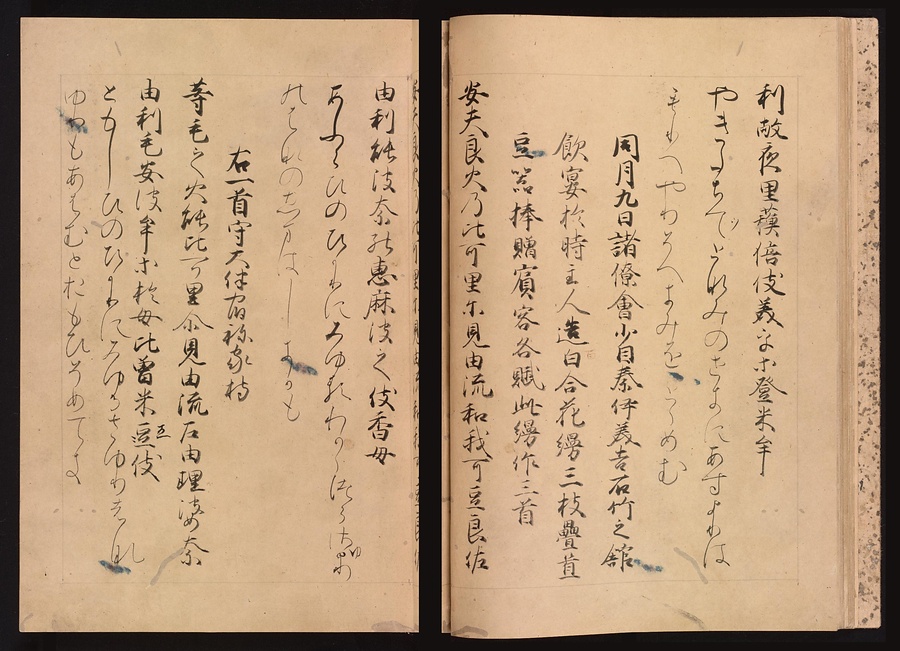 利敝夜里蘓倍伎美乎等登米牟
やきたちをとなみのせきにあすよりは
もりへやりそへきみをとゝめむ
同月九日諸僚會少目秦伊美吉石竹之舘
飲宴於時主人造白合花縵三枝疊置
豆器捧贈賓客各賦此縵作三首
安夫良火乃比可里尓見由流和我可豆良佐
由利能波奈能恵麻波之伎香母
あふらひのひかりにみゆるわかゝつらさゆり
のはなのゑまはしきかも
右一首守大伴宿祢家持
等毛之火能比可里尓見由流左由理婆奈
由利毛安波牟等於母比曽米豆伎
ともしひのひかりにみゆるさゆりはな
ゆりもあはむとおもひそめてき